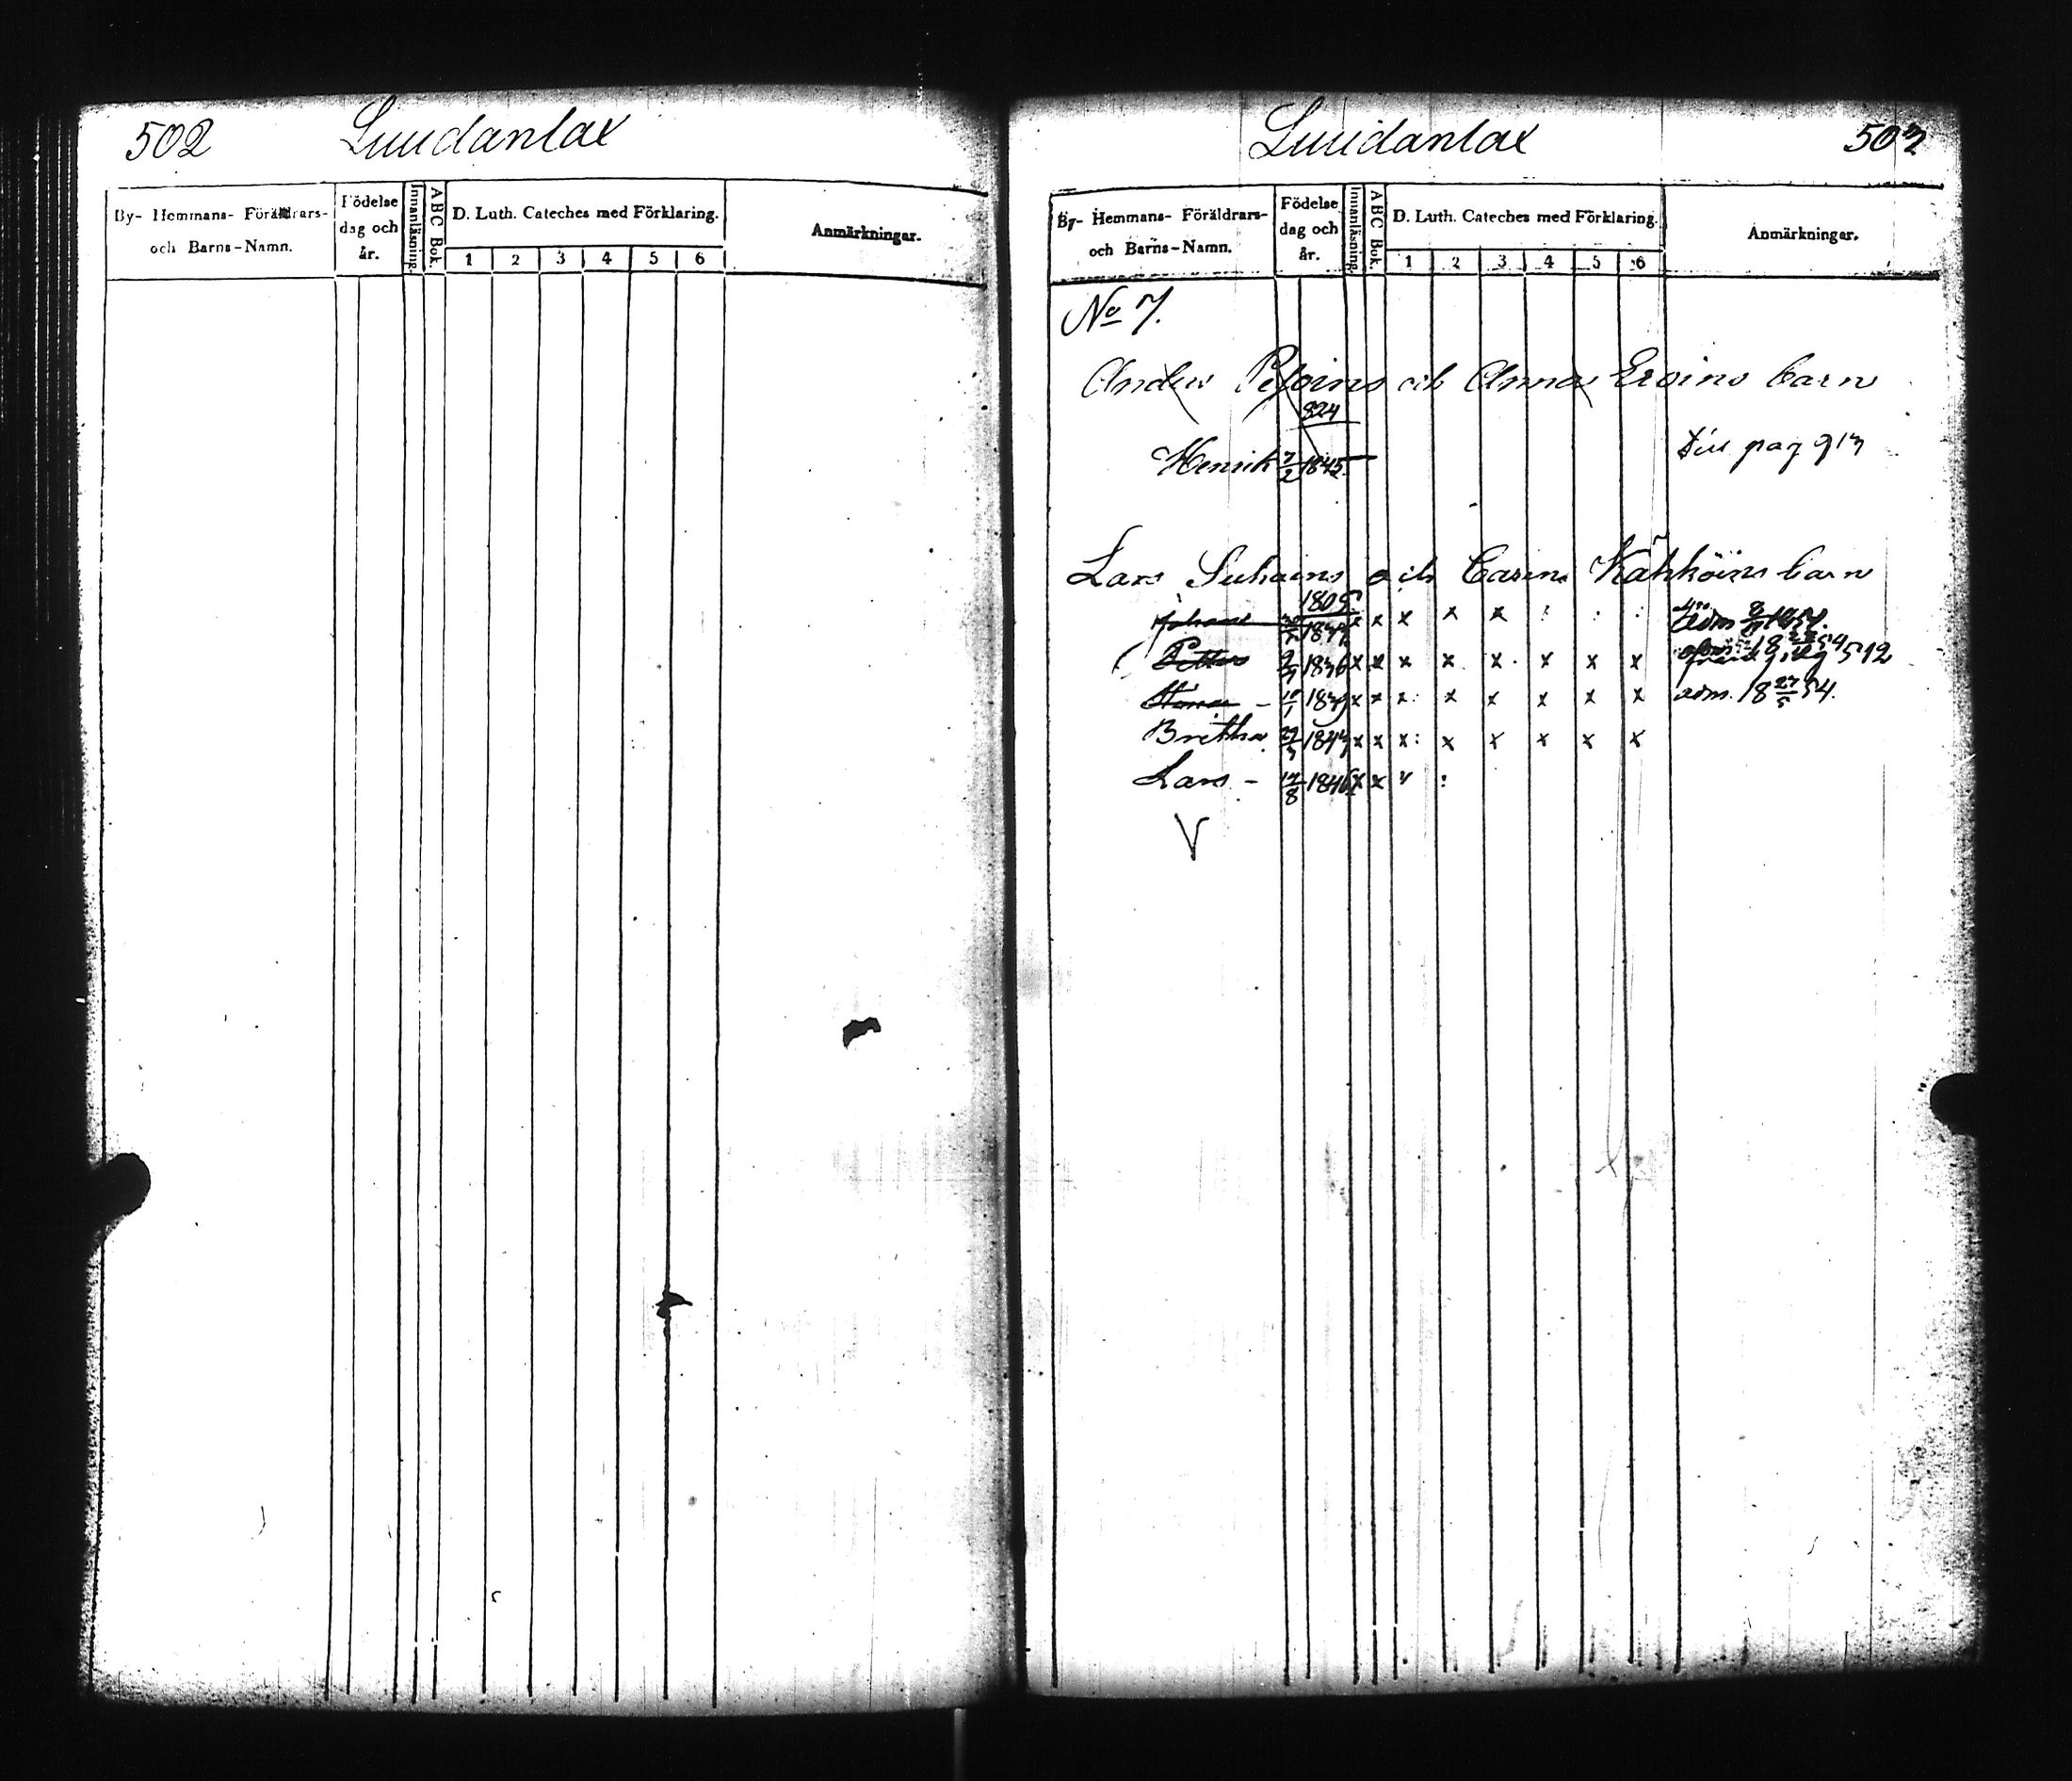 502 Luudanlax
By- Hemmans- Föräldrars- och Barns-Namn.
Födelse dag och år.
Innanläsning.
ABC Bok.
D. Luth. Cateches med Förklaring.
1 2 3 4 5 6
Anmärkningar.
Luudanlax 503
By- Hemmans- Föräldrars- och Barns-Namn.
Födelse dag och år.
Innanläsning.
ABC Bok.
D. Luth. Cateches med Förklaring.
1 2 3 4 5 6
Anmärkningar.
No 7.
Anders och Anna Eroins barn
824
Henrik 7/2 1845 pag 913
Lars Suhoins och Carin Kähköins barn
1805
Johan x x x x x : . : adm
Petter 1836 x x x x x x x x 512
10/1 1839 x x x: x x x x x adm. 18 27/5 54.
Britha 1843 x x x: x x x x x
Lars - 17/8 1846 x x v :
V